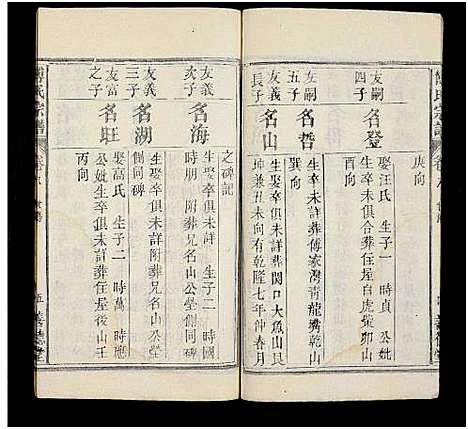 庚向
友嗣
四子
名登
娶汪氏 生子一 時貞 公妣
生卒未俱合葬住屋白虎螢卯山
友嗣
五子
名哲
生卒未詳葬傅家灣青龍嘴乾山
巽向
友義
長子
名山
生卒俱未詳葬閔口大魚山艮
坤兼丑未向有乾隆七年仲春月
之碑記
友義
次子
名海
生卒俱未詳 生子二 時國
時朋 附葬兄名山公塋側同碑
友義
三子
名湖
生卒俱未詳附葬兄名山公塋
側同碑
友富
之子
名旺
娶高氏 生子二 時萬 時應
公妣生卒俱未詳葬住屋後山壬
丙向
五